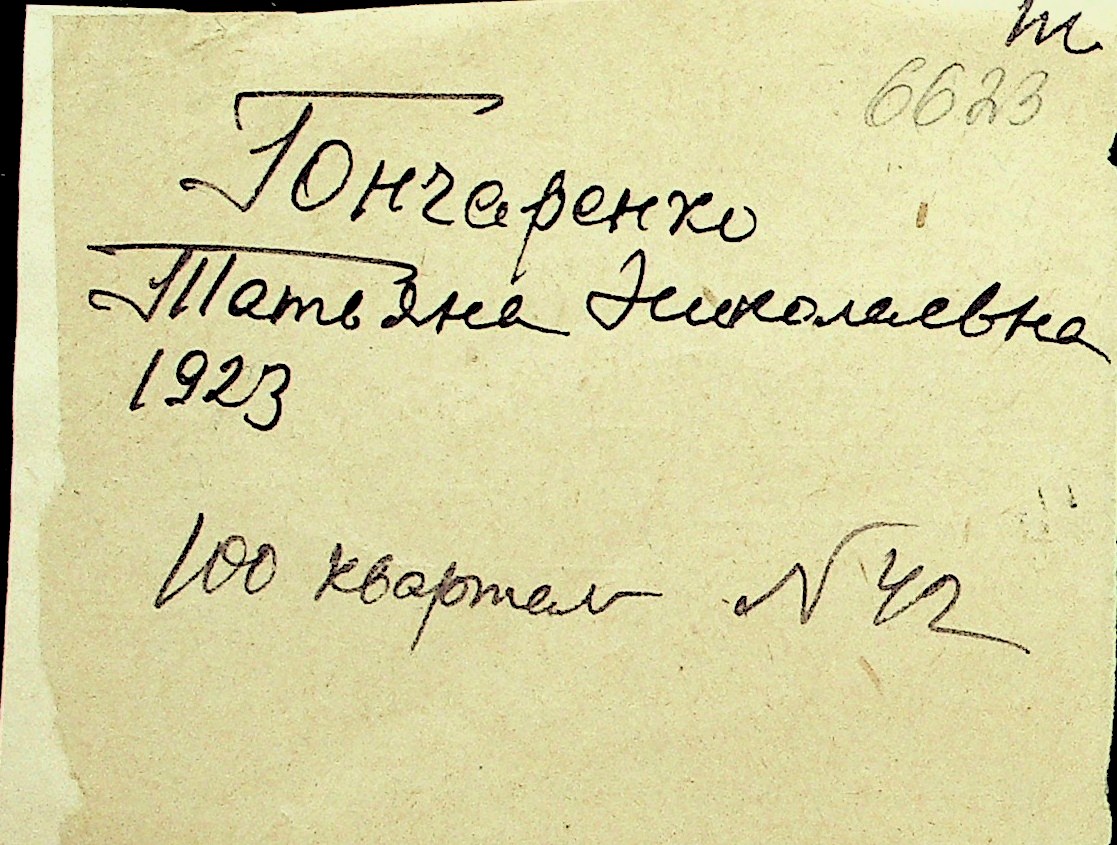 т
6623
Гончаренко
Татьяна Николаевна
1923
100 квартал N 42